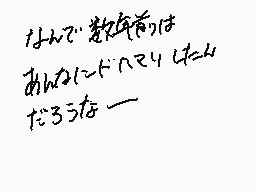 なんで数年前は
あんなにドハマりしたん
だろうなー